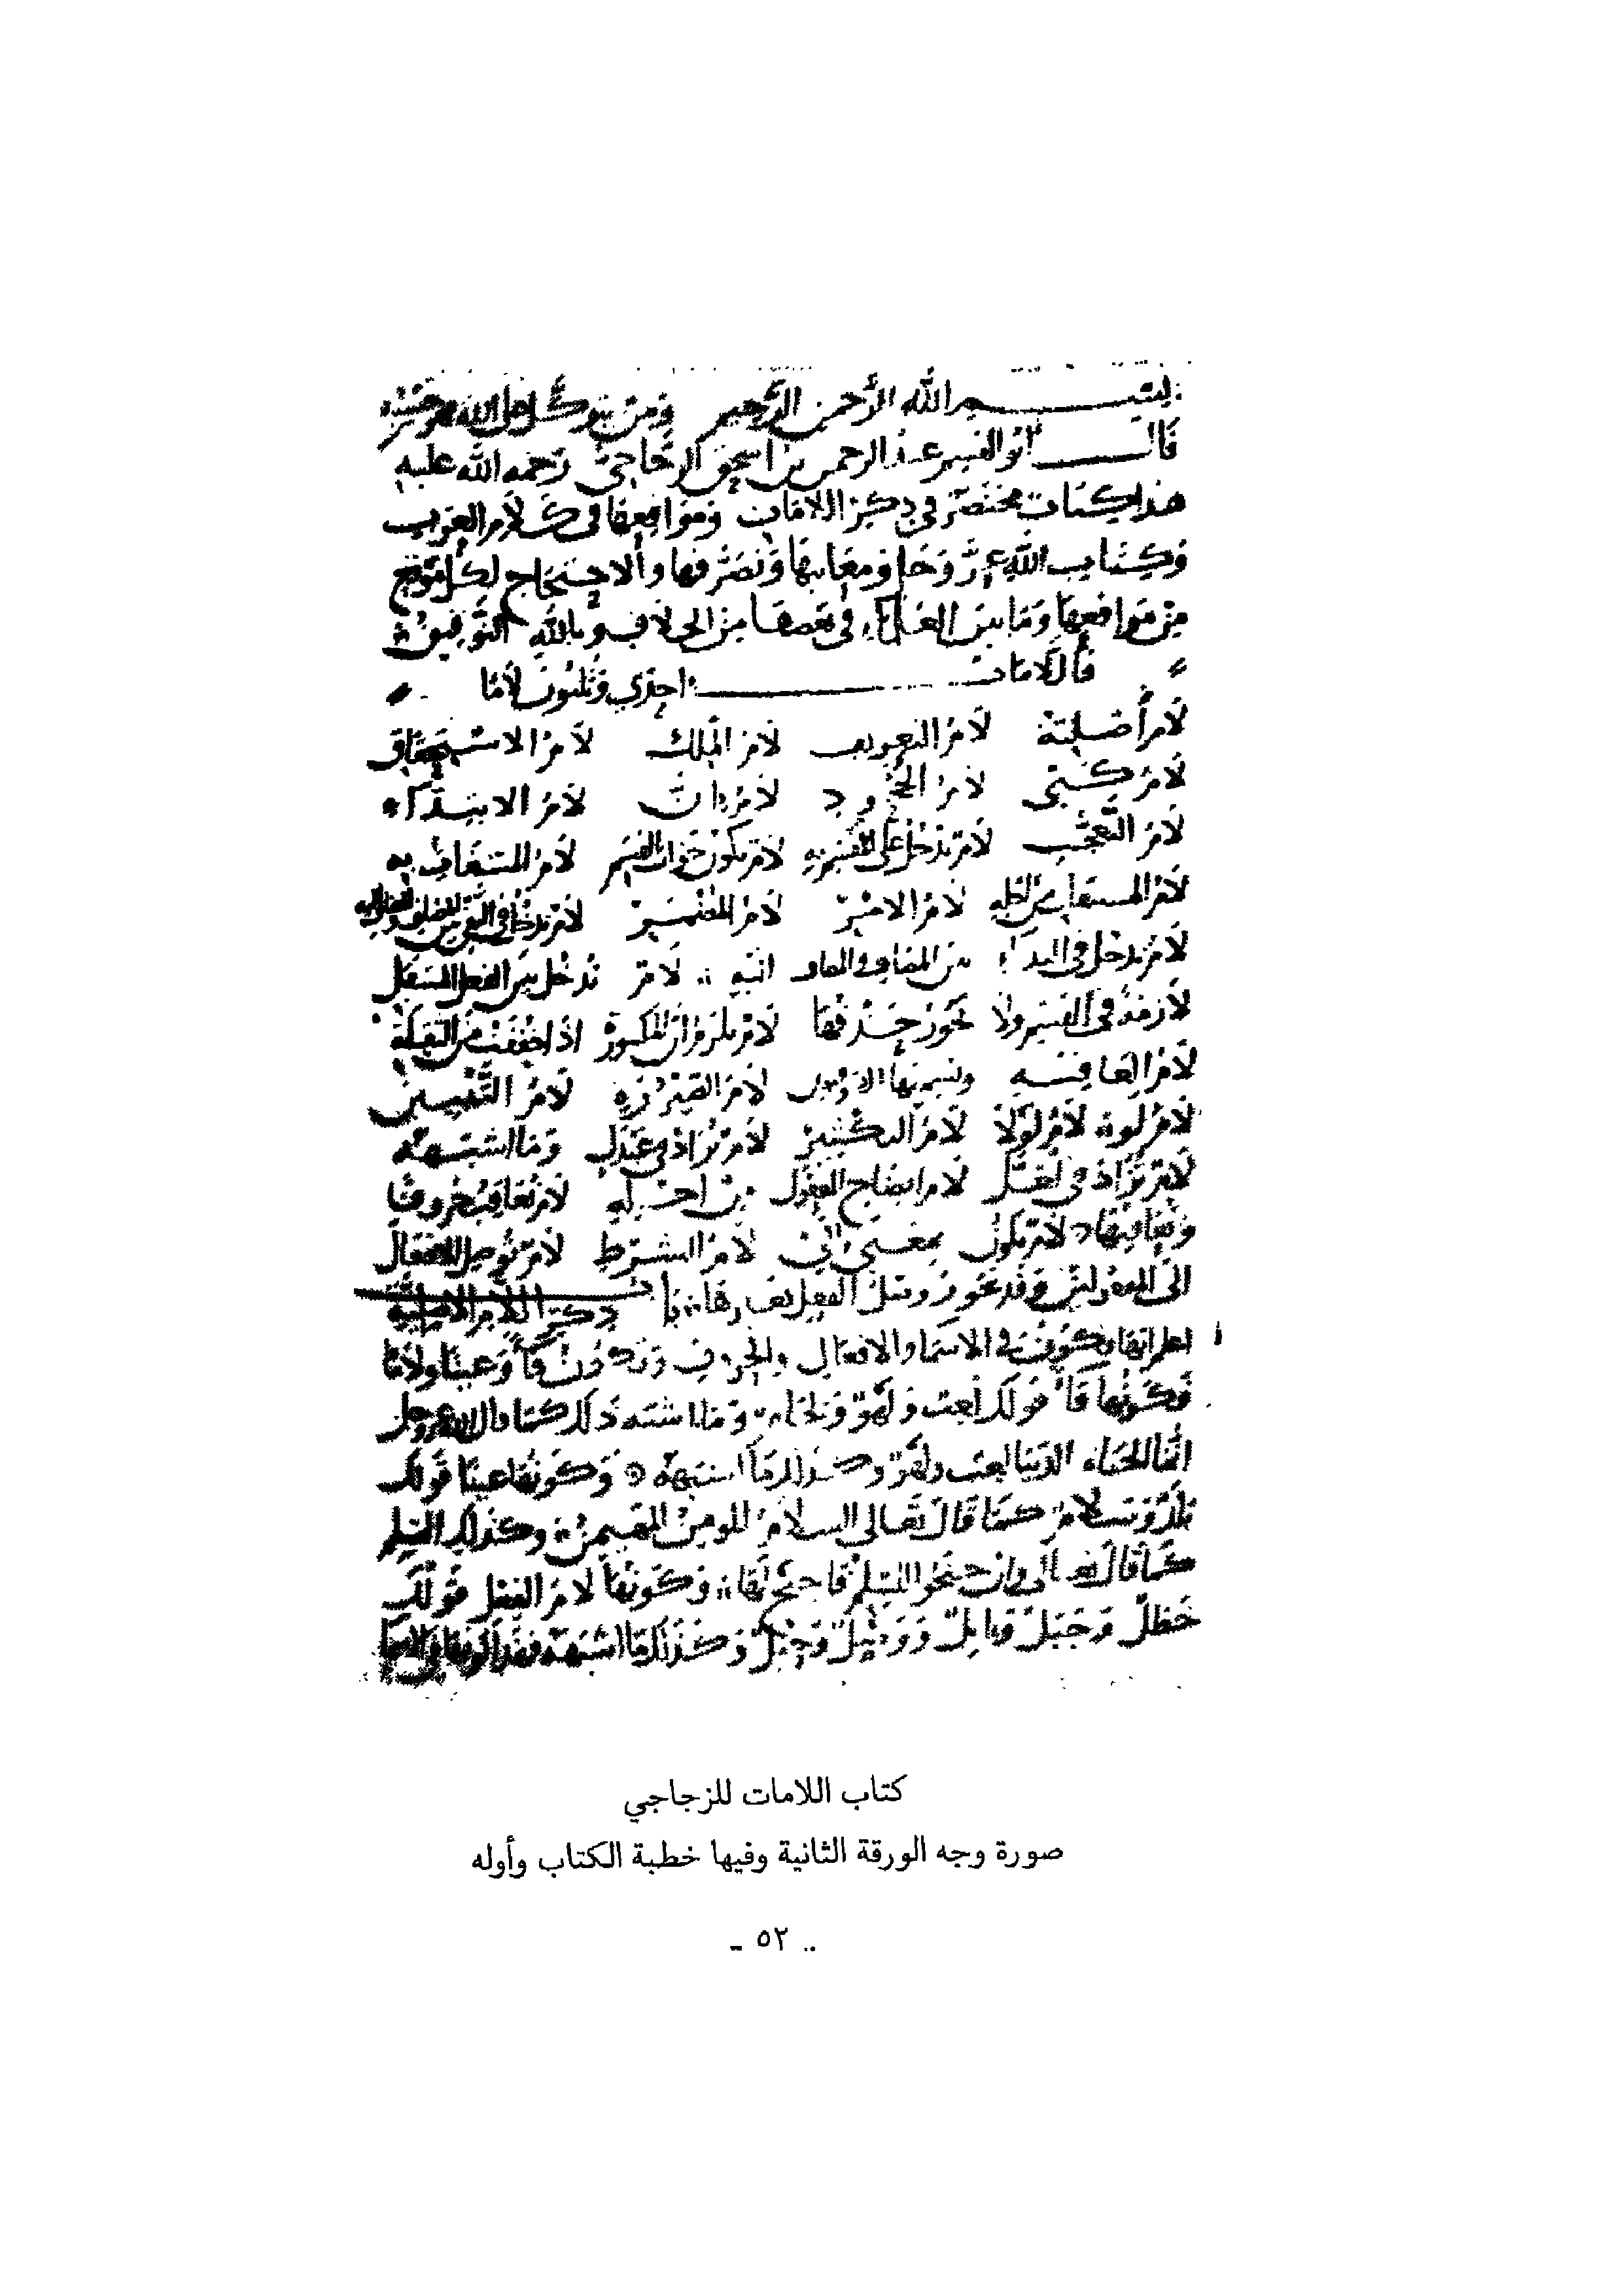 بسم الله الرحمن الرحيم ومن يتوكل على الله فهو حسبه
قال أبو القسم عبد الرحمن بن اسحق الزجاجي رحمه الله عليه
هذا كتاب مختصر في ذكر اللامات ومواقعها في كلام العرب
وكتاب الله عز وجل ومعانيها وتصرفها والاحتجاج لكل موقع
من مواقعها وما بين العلماء في بعضها من الخلاف وبالله التوفيق
فاللامات احدى وثلثون لاما
لام أصلية لام التعريف لام الملك لام الاستحقاق
لام كي لام الجحود لام ان لام الابتداء
لام التعجب لام تدخل على المقسم به لام تكون جواب القسم لام المستغاث به
لام المستغاث من اجله لام الامر لام المضمر لام تدخل في النفي بين المضاف والمضاف اليه
لام تدخل في النداء بين المضاف والمضاف اليه لام تدخل على الفعل المستقبل
لازمة في القسم ولا يجوز حذفها لام تلزم ان المكسورة اذا خففت من الثقيلة
لام العاقبة ويسميها الكوفيون لام الصيرورة لام التبيين
لام لو لام لولا لام التكثير لام تزاد في عبدل وما اشبهه
لام تزاد في لعل لام ايضاح المفعول من اجله لام تعاقب حروفا
وتعاقبها لام تكون بمعنى الى لام الشرط لام توصل الافعال
الى المفعولين وقد يجوز وصل الفعل بغيرها ذكر اللام الاصلية
اعلم انها تكون في الاسماء والافعال والحروف وتكون فاء وعينا ولاما
فكونها فاء قولك لعب ولهو ولجام وما اشبه ذلك كما قال الله عز وجل
انما الحياه الدنيا لعب ولهو وكذلك ما اشبهه وكونها عينا قولك
بلد وسلام كما قال تعالى السلام المومن المهيمن وكذلك السلم
كما قال تعالى وان جنحوا للسلم فاجنح لها وكونها لام الفعل قولك
وجبل وابل وكذلك ما اشبهه فهذا كونها في الاسما
كتاب اللامات للزجاجي
صورة وجه الورقة الثانية وفيها خطبة الكتاب وأوله
- ٥٢ -